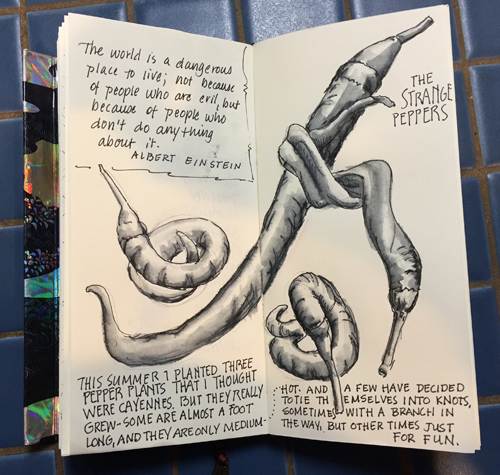 The world is a dangerous
place to live; not because
of people who are evil, but
because of people who
don't do anything
about it.
ALBERT EINSTEIN
THE
STRANGE
PEPPERS
THIS SUMMER I PLANTED THREE
PEPPER PLANTS THAT I THOUGHT
WERE CAYENNES. BUT THEY REALLY
GREW-SOME ARE ALMOST A FOOT
LONG, AND THEY ARE ONLY MEDIUM-
HOT. AND A FEW HAVE DECIDED
TO TIE THEMSELVES INTO KNOTS,
SOMETIMES WITH A BRANCH IN
THE WAY, BUT OTHER TIMES JUST
FOR FUN.